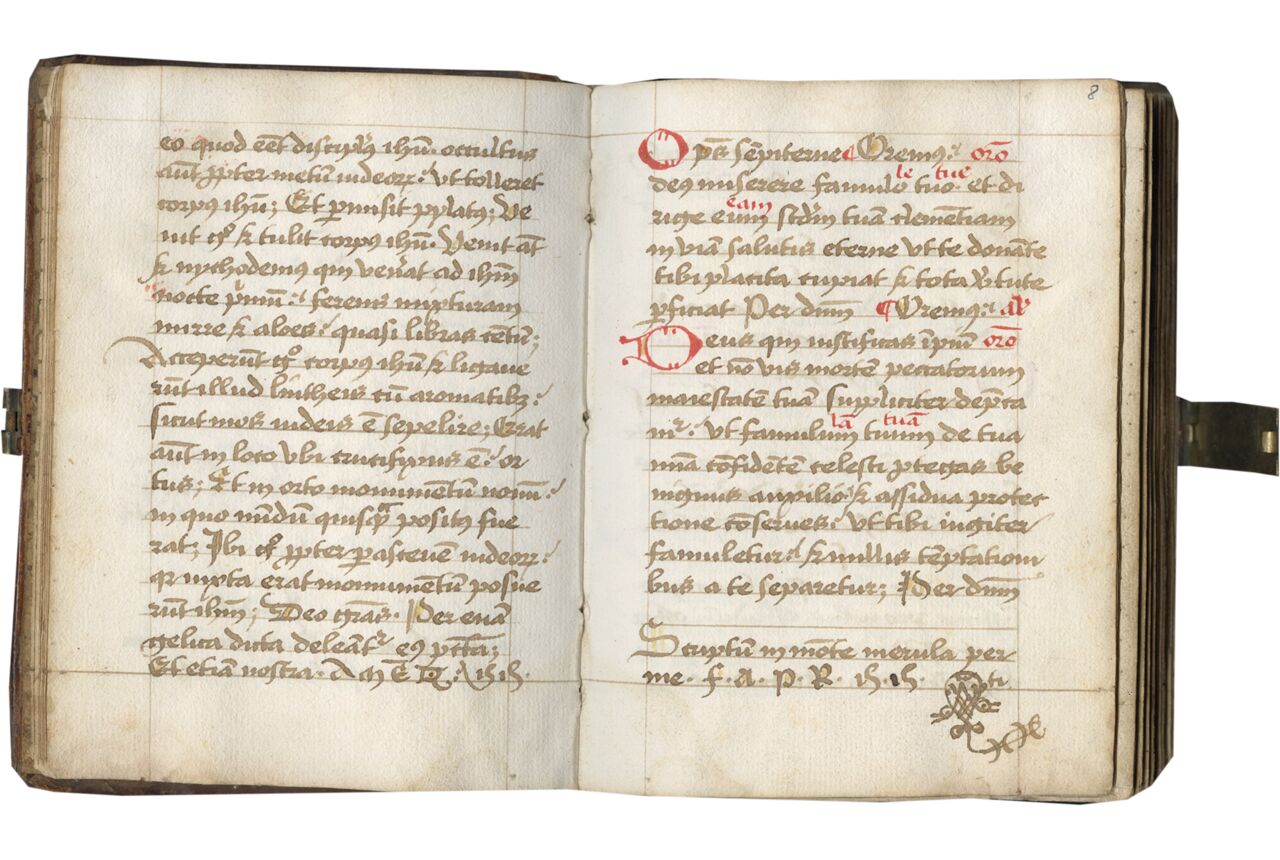 eo quod eēt discipl9 ihū. occultus
aūt ꝓpter metū iudeoꝝ: Vt tolleret
corpus ihū; Et ꝑmisit pylatus; Ve
nit & tulit corpus ihū. Venit aūt
& nychodemus qui ven̄at ad ihm̄
nocte pͥmū: ferens mixturam
mirre & aloes: quasi libras cētū;
Acceperūt corpus ihū & ligaue
rūt illud lintheis cū aromatibꝫ:
sicut mos iudeis ē sepelire; Erat
aūt in loco vbi crucifixus ē: or
tus; Et in orto monumētū nouū:
in quo nōdū quisqᵃ posit9 fue
rat; Ibi ꝓpter ꝑasceuē iudeoꝝ:
qr iuxta erat monumētū posue
rūt ihm̄; Deo grās. Per euā
gelica dicta deleāt eꝰ pctā;
Et etiā nostra. A ih ih.
8
Ops sēpiterne Oremꝰ: orō
le tue
deus miserere famulo tuo. et di
eam
rige eum scdm̄ tuā clemētiam
in viā salutis eterne vt te donāte
tibi placita cupiat & tota v̓tute
ꝑficiat Per dnm̄ Oremꝰ:
Deus qui iustificas īpiū orō
et nō vis mortē peccatorum
maiestatē tuā supliciter dep̄ca
lā tuā
mʳ: vt famulum tuum de tua
mīa cōfidētē celesti ꝓtegas be
nignus auxilio: & assidua protec
tione cōserues: Vt tibi iugiter
famuletur: & nullis tēptationi
bus a te separetur; Per dnm̄
Scriptū in mōte merula per
me. f. A. P. R. ih. ih. ti